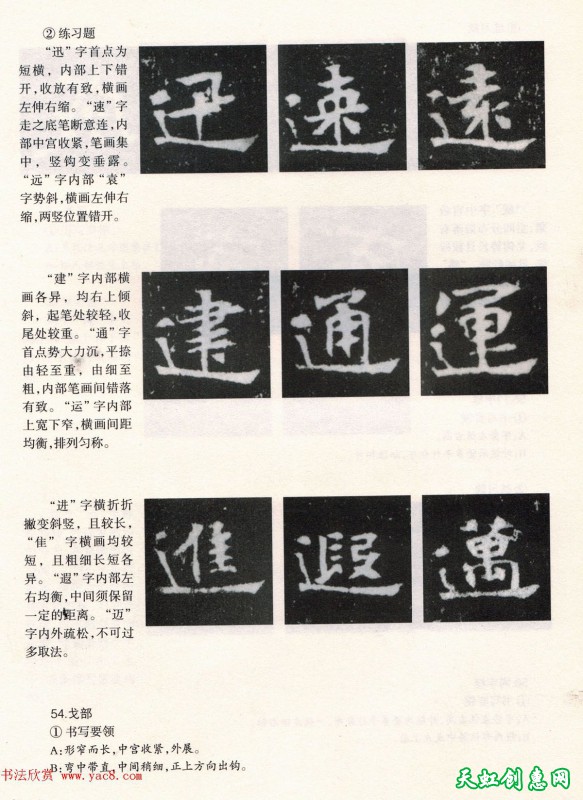 ② 练习题
“迅”字首点为
短横，内部上下错
开，收放有致，横画
左伸右缩。“速”字
走之底笔断意连，内
部中宫收紧，笔画集
中，竖钩变垂露。
“远”字内部“袁”
字势斜，横画左伸右
缩，两竖位置错开。
迅 速 遠
“建”字内部横
画各异，均右上倾
斜，起笔处较轻，收
尾处较重。“通”字
首点势大力沉，平捺
由轻至重，由细至
粗，内部笔画间错落
有致。“运”字内部
上宽下窄，横画间距
均衡，排列匀称。
建 通 運
“进”字横折折
撇变斜竖，且较长，
“隹”字横画均较
短，且粗细长短各
异。“遐”字内部左
右均衡，中间须保留
一定的距离。“迈”
字内外疏松，不可过
多取法。
進 遐 邁
54.戈部
① 书写要领
A：形窄而长，中宫收紧，外展。
B：弯中带直，中间稍细，正上方向出钩。
书法欣赏 www.yac8.com
天虹创意网